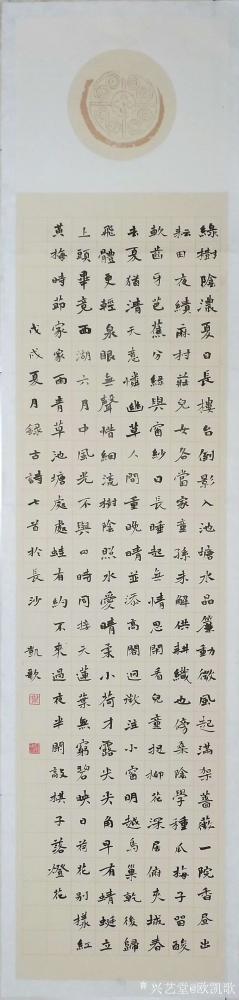 綠樹陰濃夏日長樓台倒影入池塘水晶簾動微風起滿架薔薇一院香晝出
耘田夜績麻村莊兒女各當家童孫未解供耕織也傍桑陰學種瓜梅子留酸
軟齒牙芭蕉分綠與窗紗日長睡起無情思閑看兒童捉柳花深居俯夾城春
去夏猶清天意憐幽草人間重晚晴並添高閣迥微注小窗明越鳥巢乾後歸
飛體更輕泉眼無聲惜細流樹陰照水愛晴柔小荷才露尖尖角早有蜻蜓立
上頭畢竟西湖六月中風光不與四時同接天蓮葉無窮碧映日荷花別樣紅
黃梅時節家家雨青草池塘處處蛙有約不來過夜半閑敲棋子落燈花
戊戌夏月錄古詩七首於長沙 凱歌
兴艺堂@欧凯歌